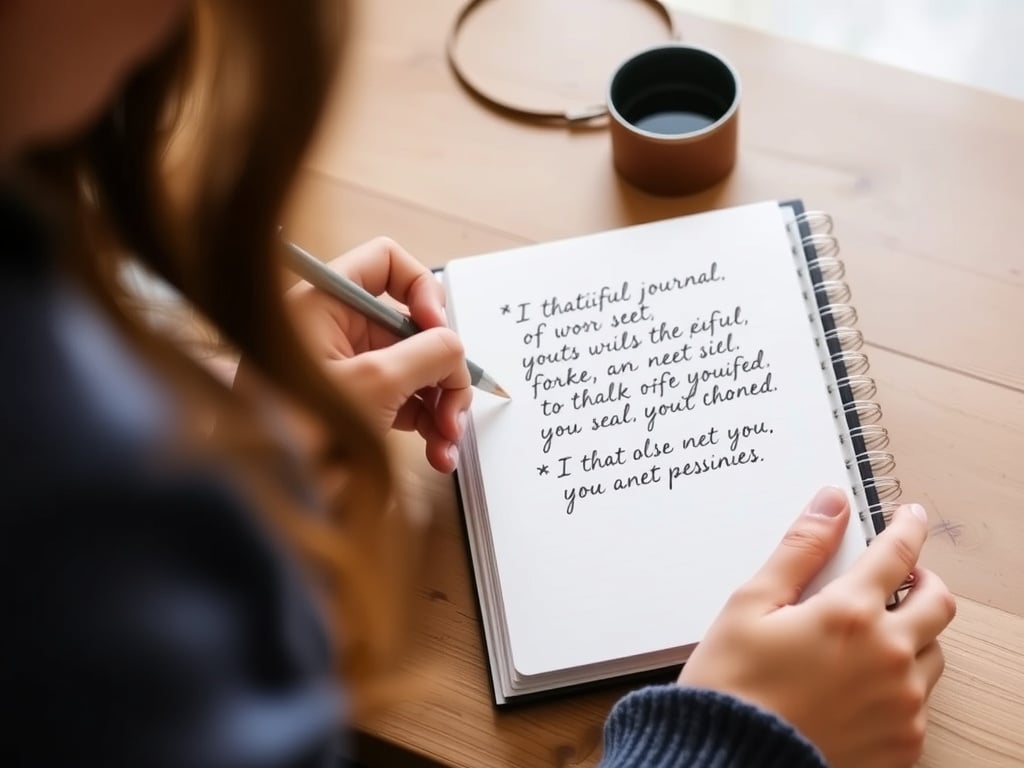 * I thatiiful journal.
of worr seet.
youts wrils the eiful,
forke, an neet siel.
to thalk oife youifed.
you seal, yout choned.
* I that alse net you,
you anet pessinies.